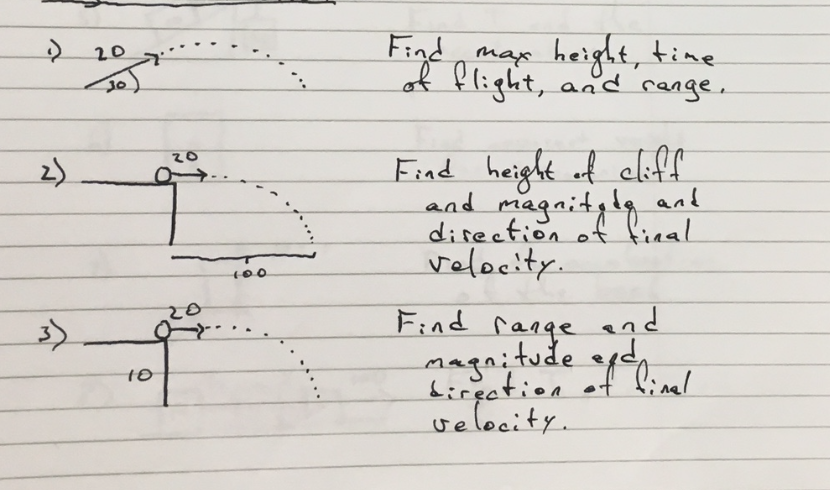 1) 20 Find max height, time
30 of flight, and range.
2) 20 Find height of cliff
and magnitude and
direction of final
100 velocity.
3) 20 Find range and
10 magnitude and
direction of final
velocity.